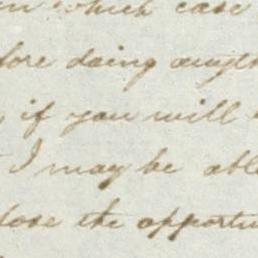 in which case
fore doing anyth
, if you will
I may be able
lose the opportu